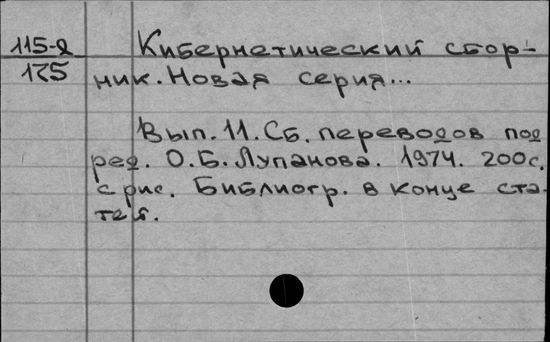 115-2 Кибернетический сбор-
175 ник. Новая серия...
Вып. 11. Сб. переводов под
ред. О.Б. Лупанова. 1974. 200с.
с рис. Библиогр. в конце ста-
тей.